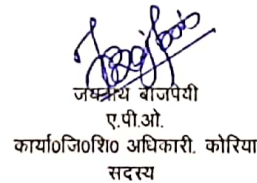 बाजपेयी
ए.पी.ओ.
कार्या०जि०शि० अधिकारी. कोरिया
सदस्य